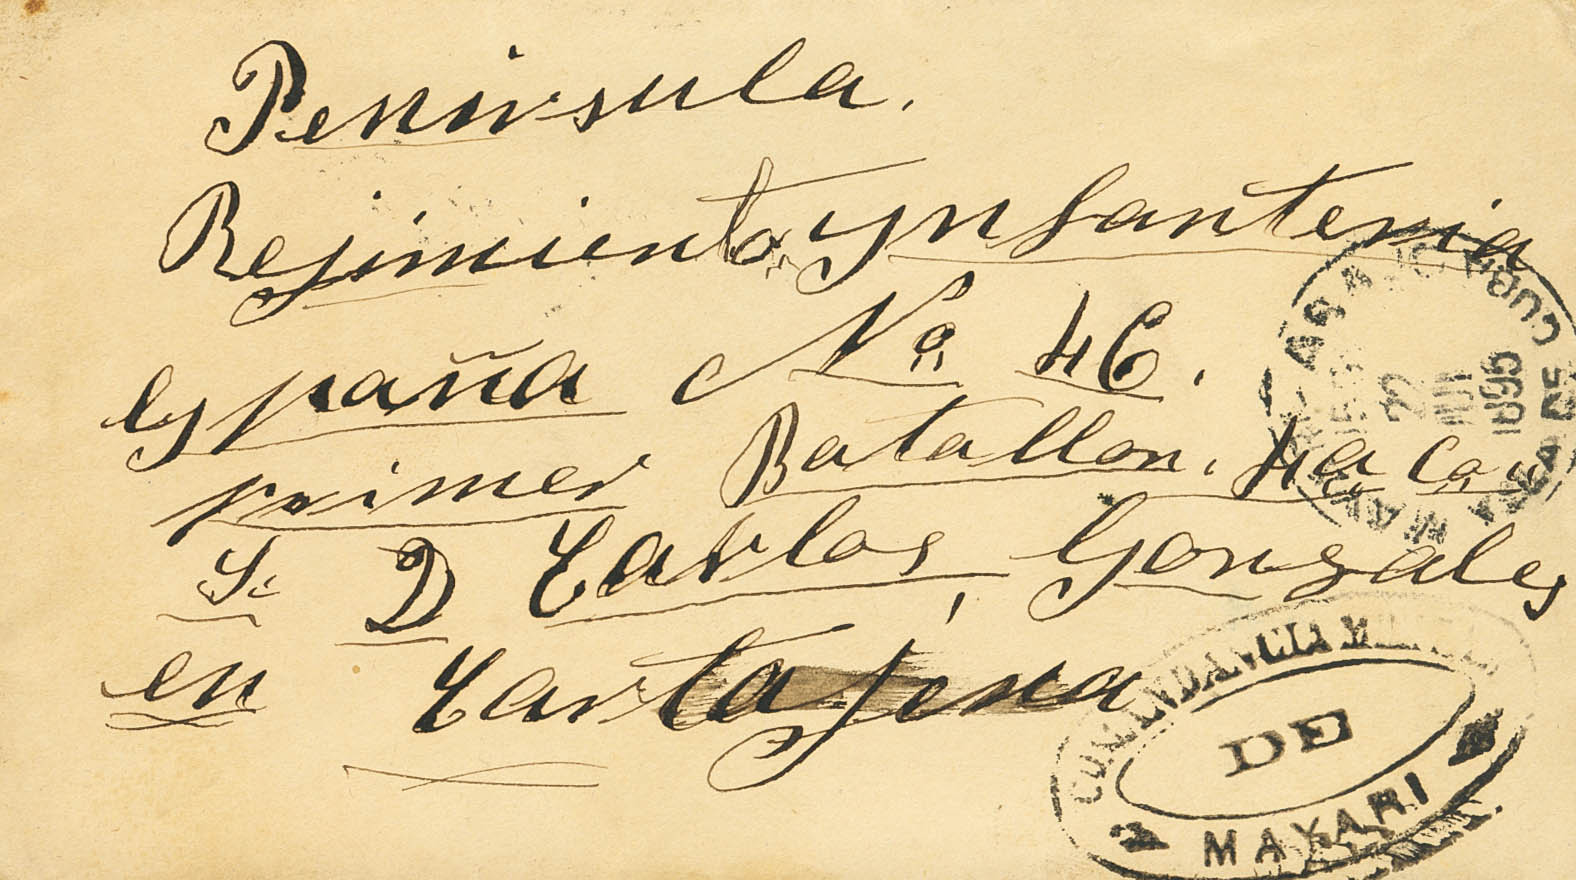 Peninsula.
Rejimiento Ynfanteria
España No 46.
primer Batallon. 4a Ca
Sr D Carlos Gonzales
en Cartajena
CUBA
1895
COMANDANCIA MILITAR
DE
MAYARI